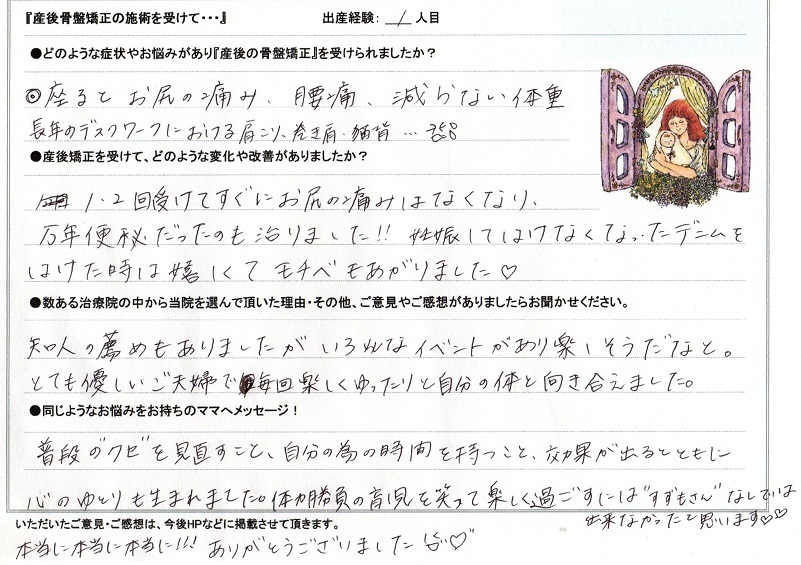 『産後骨盤矯正の施術を受けて・・・』　出産経験： 1 人目
●どのような症状やお悩みがあり『産後の骨盤矯正』を受けられましたか？
◎座るとお尻の痛み、腰痛、減らない体重
長年のデスクワークにおける肩こり、巻き肩・猫背…
●産後矯正を受けて、どのような変化や改善がありましたか？
1・2回受けてすぐにお尻の痛みはなくなり、
万年便秘だったのも治りました!! 妊娠してはけなくなったデニムを
はけた時は嬉しくてモチベもあがりました♡
●数ある治療院の中から当院を選んで頂いた理由・その他、ご意見やご感想がありましたらお聞かせください。
知人の薦めもありましたがいろんなイベントがあり楽しそうだなと。
とても優しいご夫婦で毎回楽しくゆったりと自分の体と向き合えました。
●同じようなお悩みをお持ちのママへメッセージ！
普段の"クセ"を見直すこと、自分の為の時間を持つこと、効果が出るとともに
心のゆとりも生まれました。体力勝負の育児を笑って楽しく過ごすには"すずもさん"なしでは
出来なかったと思います♡♡
いただいたご意見・ご感想は、今後HPなどに掲載させて頂きます。
本当に本当に本当に!!! ありがとうございました♡